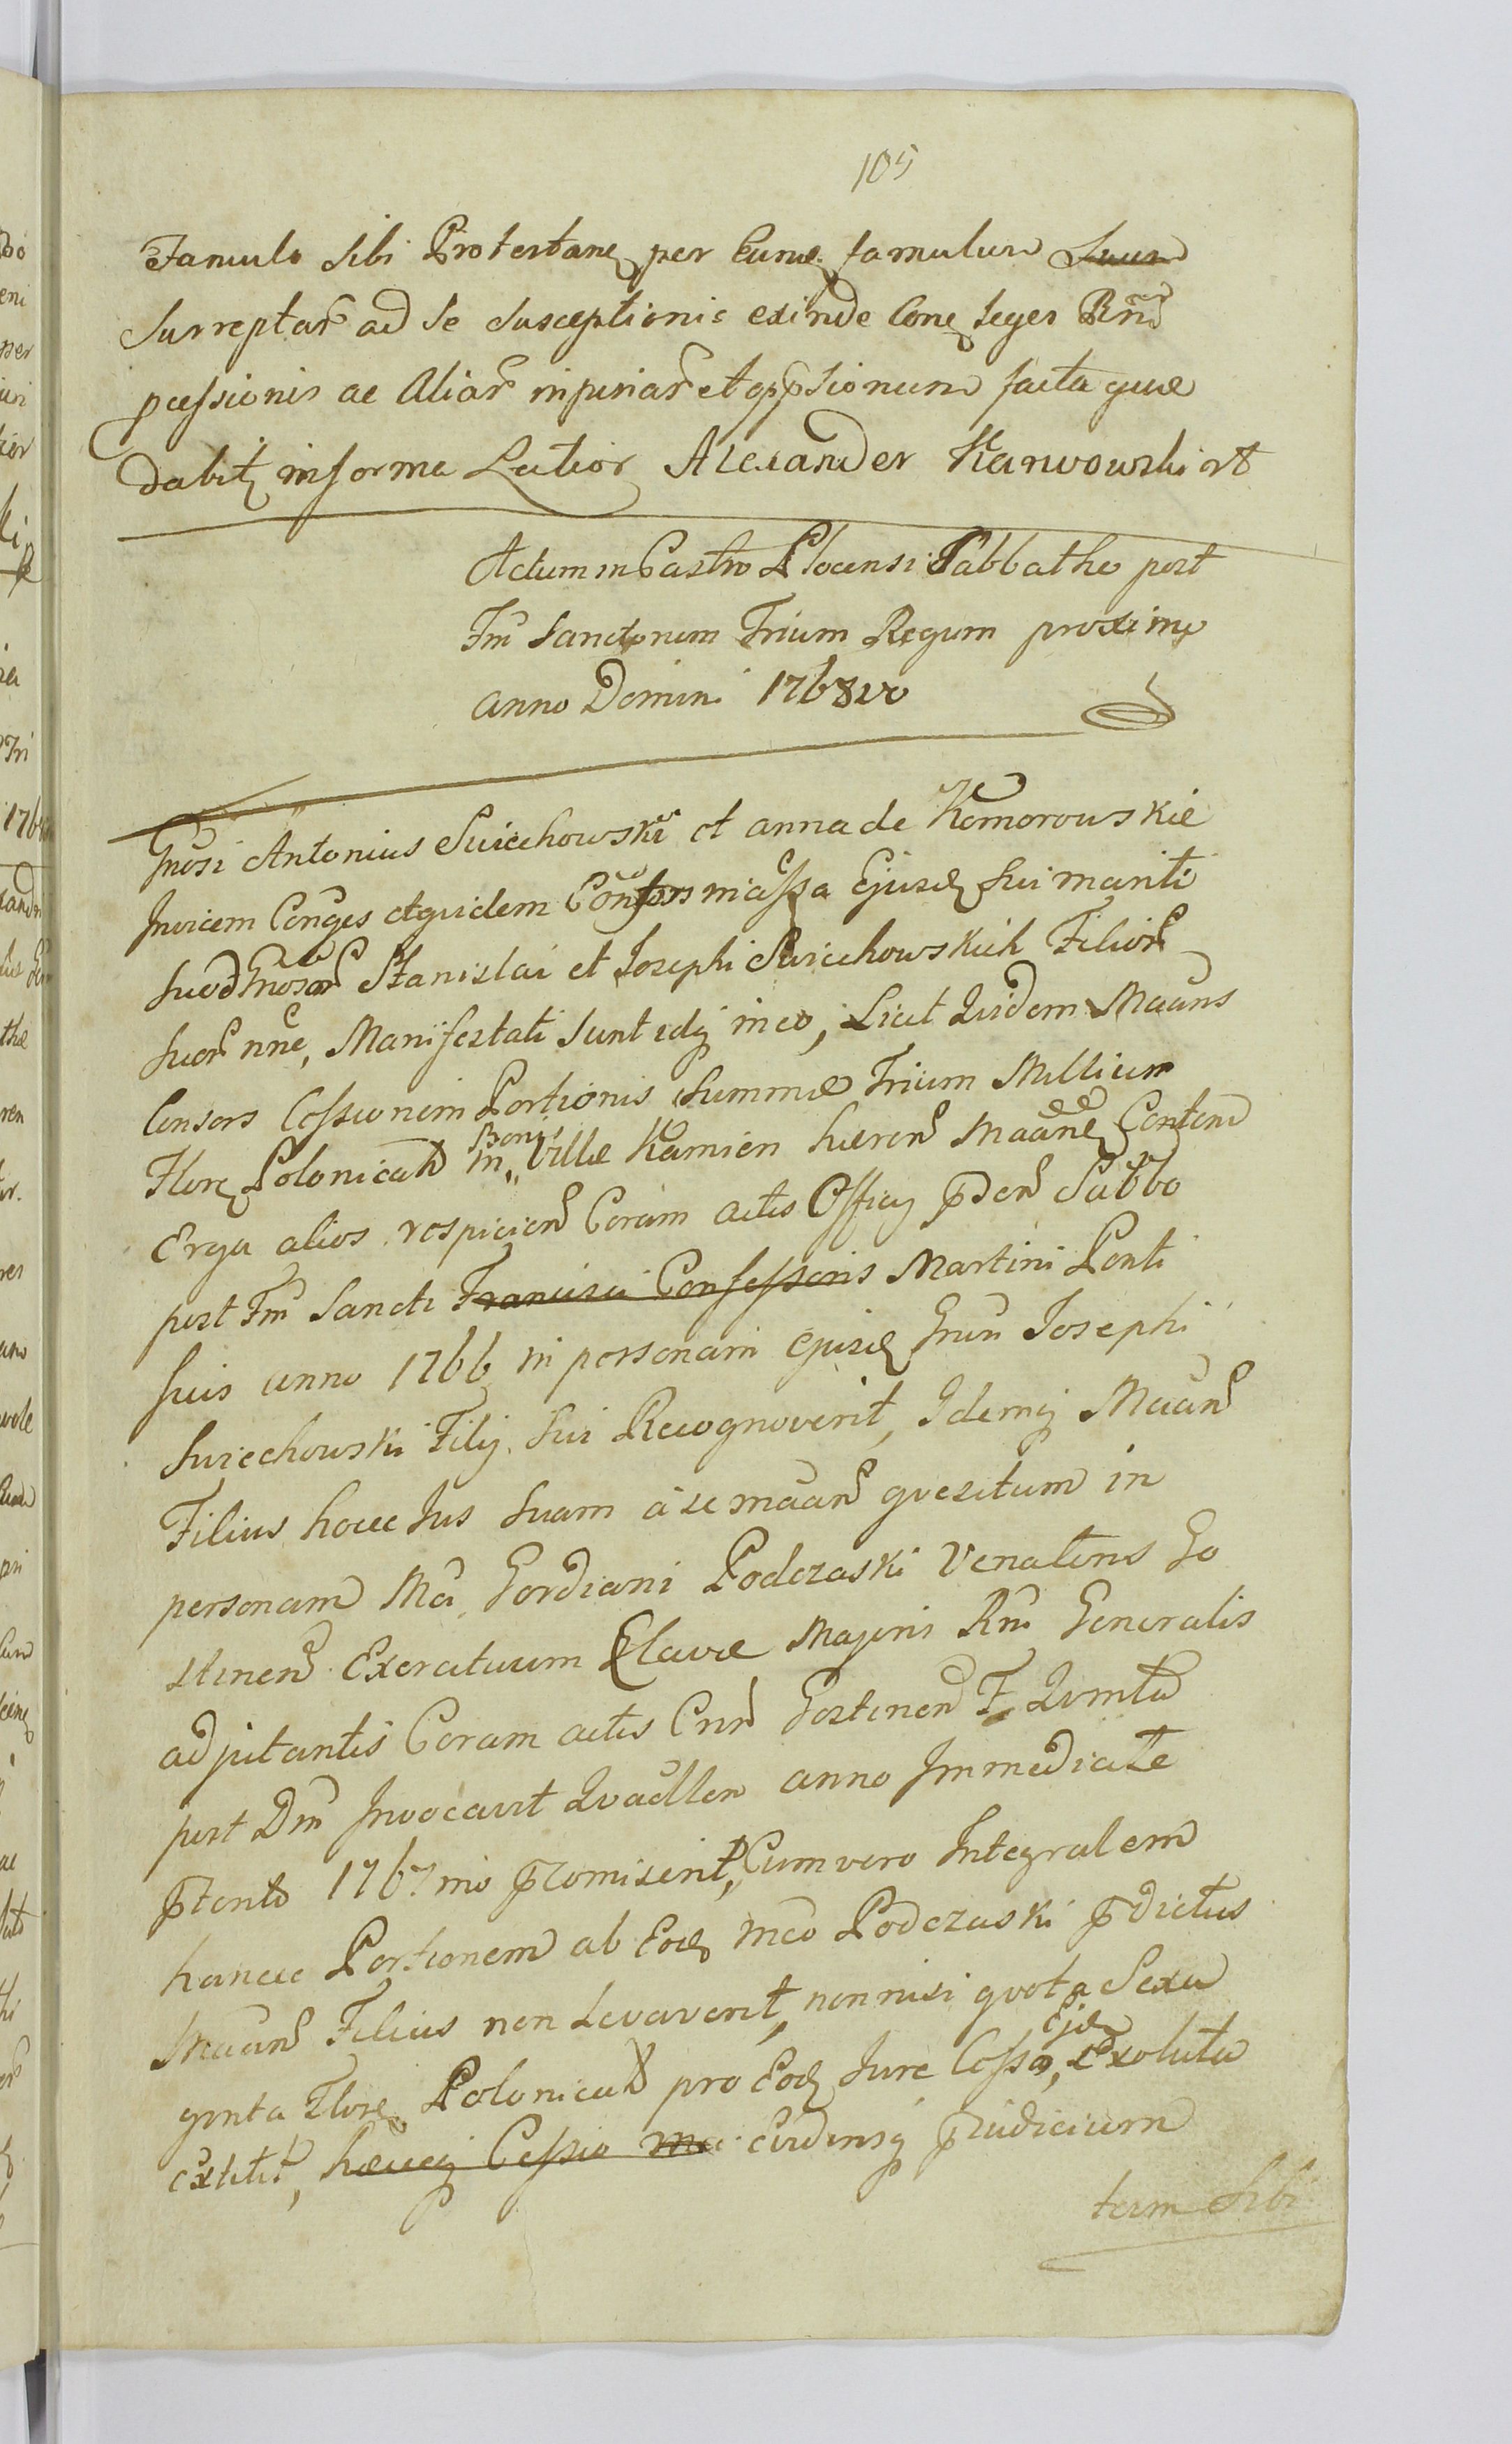 105
Famulo Sibi Protestane per Eunde famulum Suum
Surreptar ad Se Susceptionis exinde Cone leges Rnd
pcessionis ac Aliar injuriar et oppssionum facta que
dabit in forma Latior Alexander Karwowski mp
Actum in Castro Plocensi Sabbatho post
Fm Sanctorum Trium Regum proximo
anno Domini 1768vo
Gnosi Antonius Swiechowski et anna de Komorowskie
Invicem Conges etquidem Consors Ejusd Sui mariti
Suo Gnosor Stanislai et Josephi Swiechowskich Filior
Suor nne, Manifestati Sunt idq in eo, Licet Quidem Maans
Consors Cessionem Portionis Summae Trium Millium
Flore Polonicah in Bonis Villae Kamien haeren Maane Conten
Erga alios respicien Coram actis Officij pden Sabbo
post Fm Sancti Francisci Confessoris Martini Ponti
ficis anno 1766 in personam ejusd Gnu Josephi
Swiechowski Filij Sui Recognoverit, Idemq Maan
Filius hocce Jus Suam a se maan quesitum in
personam Mci Gordiani Podczaski Venatoris Go
stinen Exercituum Clavae Majoris Rni Generalis
adjutantis Coram actis Cnn Gostinen F Quinta
post Dm Invocavit Quadllem anno Immediate
ptento 1767mo promiserit, Cum vero Integralem
hancce Portionem ab Eod Mco Podczaski pdictus
Maan Filius non Levaverit, non nisi quota Sexa
ginta Flore Polonicah pro Eod Jure Cesso, Ejd Exoluta
extitit, haecq Cessio in evidensq pjudicium
tum Sibi